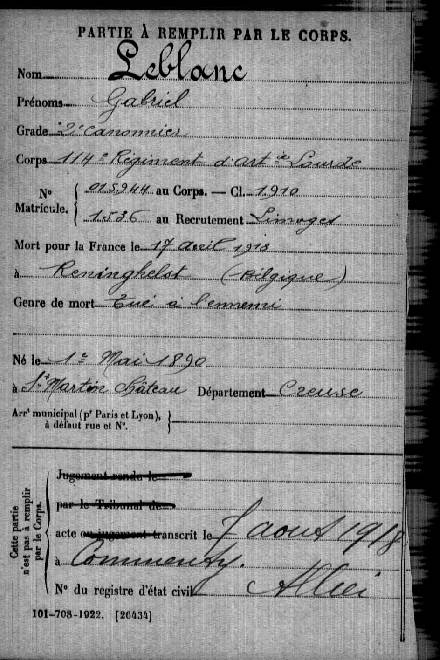 PARTIE À REMPLIR PAR LE CORPS.
Nom Leblanc
Prénoms Gabriel
Grade 2e canonnier
Corps 114e Régiment d'art ie Lourde
No Matricule. 015944 au Corps. — Cl. 1910
1536 au Recrutement Limoges
Mort pour la France le 17 avril 1918
à Reninghelst (Belgique)
Genre de mort Tué à l'ennemi
Né le 1er Mai 1890
à St Martin Château Département Creuse
Arrt municipal (pr Paris et Lyon),
à défaut rue et No.
Cette partie
n'est pas à remplir
par le Corps.
Jugement rendu le
par le Tribunal de
acte ou jugement transcrit le 7 aout 1918
à Commentry.
No du registre d'état civil Allier
101-708-1922. [26434]